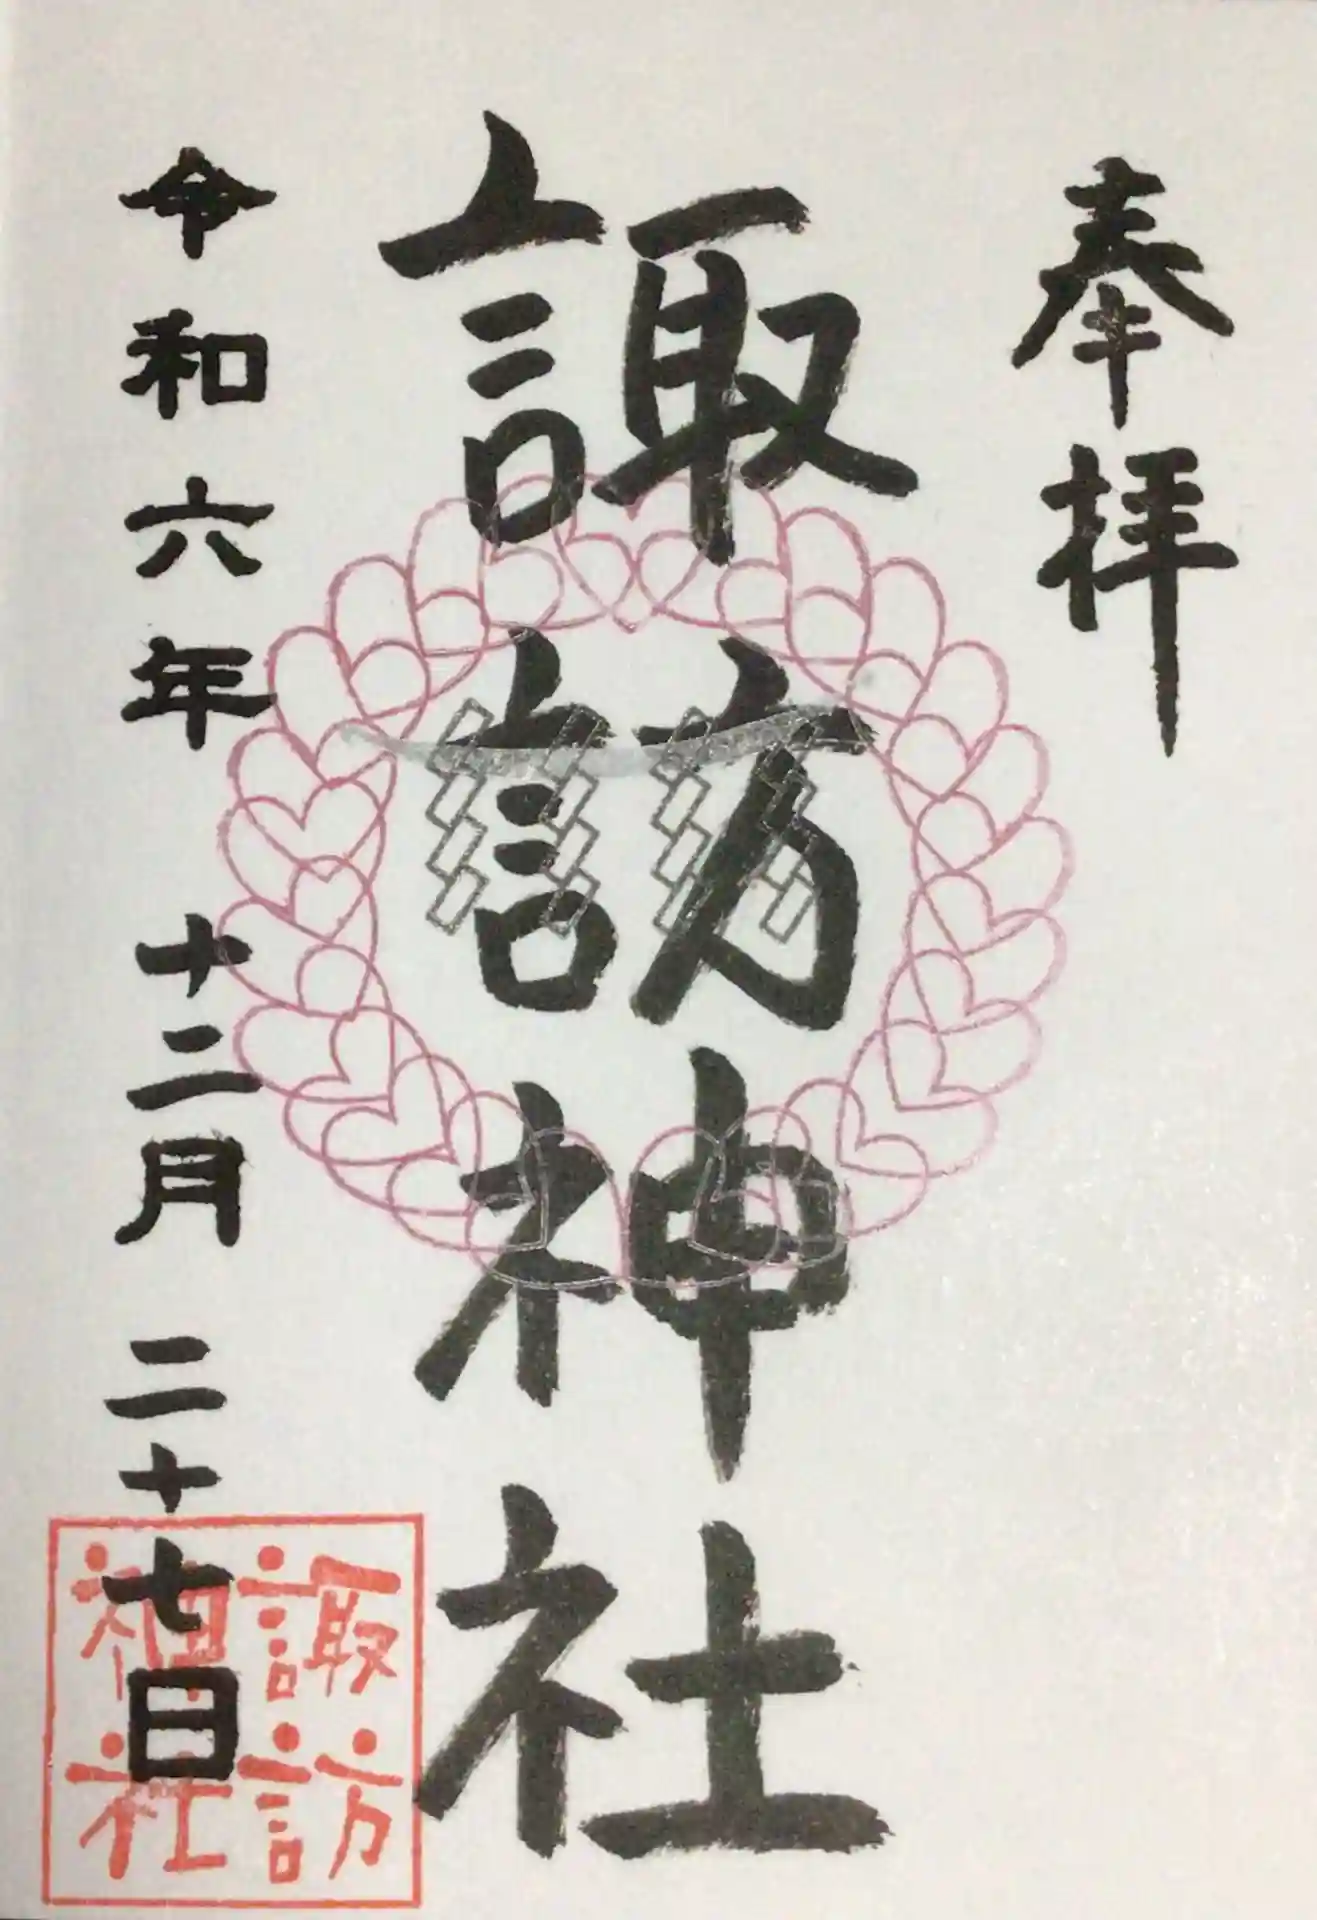 奉拝
諏訪神社
令和六年 十二月 二十七日
諏訪
神社